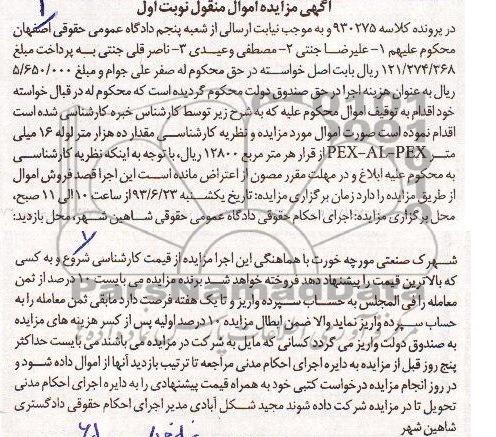 آگهی مزایده اموال منقول نوبت اول
در پرونده کلاسه ۹۳۰۲۷۵ و به موجب نیابت ارسالی از شعبه پنجم دادگاه عمومی حقوقی اصفهان
محکوم علیهم ۱- علیرضا جنتی ۲- مصطفی وعیدی ۳- ناصر قلی جنتی به پرداخت مبلغ
۱۲۱/۲۷۴/۲۶۸ ریال بابت اصل خواسته در حق محکوم له صفر علی جوام و مبلغ ۵/۶۵۰/۰۰۰
ریال به عنوان هزینه اجرا در حق صندوق دولت محکوم گردیده است که محکوم له در قبال خواسته
خود اقدام به توقیف اموال محکوم علیه که به شرح زیر توسط کارشناس خبره کارشناسی شده است
اقدام نموده است صورت اموال مورد مزایده و نظریه کارشناسی مقدار ده هزار متر لوله ۱۶ میلی
متر PEX-AL-PEX از قرار هر متر مربع ۱۲۸۰۰ ریال، با توجه به اینکه نظریه کارشناسی
به محکوم علیه ابلاغ و در مهلت مقرر مصون از اعتراض مانده است این اجرا قصد فروش اموال
از طریق مزایده را دارد زمان برگزاری مزایده: تاریخ یکشنبه ۹۳/۶/۲۳ از ساعت ۱۰ الی ۱۱ صبح،
محل برگزاری مزایده: اجرای احکام حقوقی دادگاه عمومی حقوقی شاهین شهر، محل بازدید:
شهرک صنعتی مورچه خورت با هماهنگی این اجرا مزایده از قیمت کارشناسی شروع و به کسی
که بالاترین قیمت را پیشنهاد دهد فروخته خواهد شد برنده مزایده می بایست ۱۰ درصد از ثمن
معامله را فی المجلس به حساب سپرده واریز و تا یک هفته فرصت دارد مابقی ثمن معامله را به
حساب سپرده واریز نماید والا ضمن ابطال مزایده ۱۰ درصد اولیه پس از کسر هزینه های مزایده
به صندوق دولت واریز می گردد کسانی که مایل به شرکت در مزایده می باشند می بایست حداکثر
پنج روز قبل از مزایده به دایره اجرای احکام مدنی مراجعه تا ترتیب بازدید آنها از اموال داده شود و
در روز انجام مزایده درخواست کتبی خود به همراه قیمت پیشنهادی را به دایره اجرای احکام مدنی
تحویل تا در مزایده شرکت داده شوند مجید شکل آبادی مدیر اجرای احکام حقوقی دادگستری
شاهین شهر